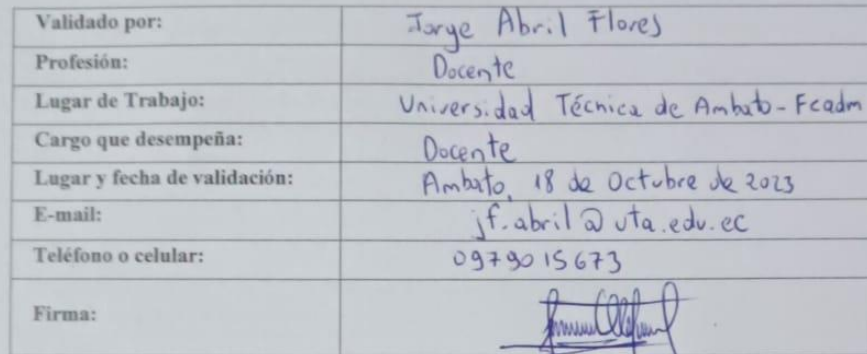 Validado por: Jorge Abril Flores
Profesión: Docente
Lugar de Trabajo: Universidad Técnica de Ambato - Fcadm
Cargo que desempeña: Docente
Lugar y fecha de validación: Ambato, 18 de Octubre de 2023
E-mail: jf.abril@uta.edu.ec
Teléfono o celular: 0979015673
Firma: